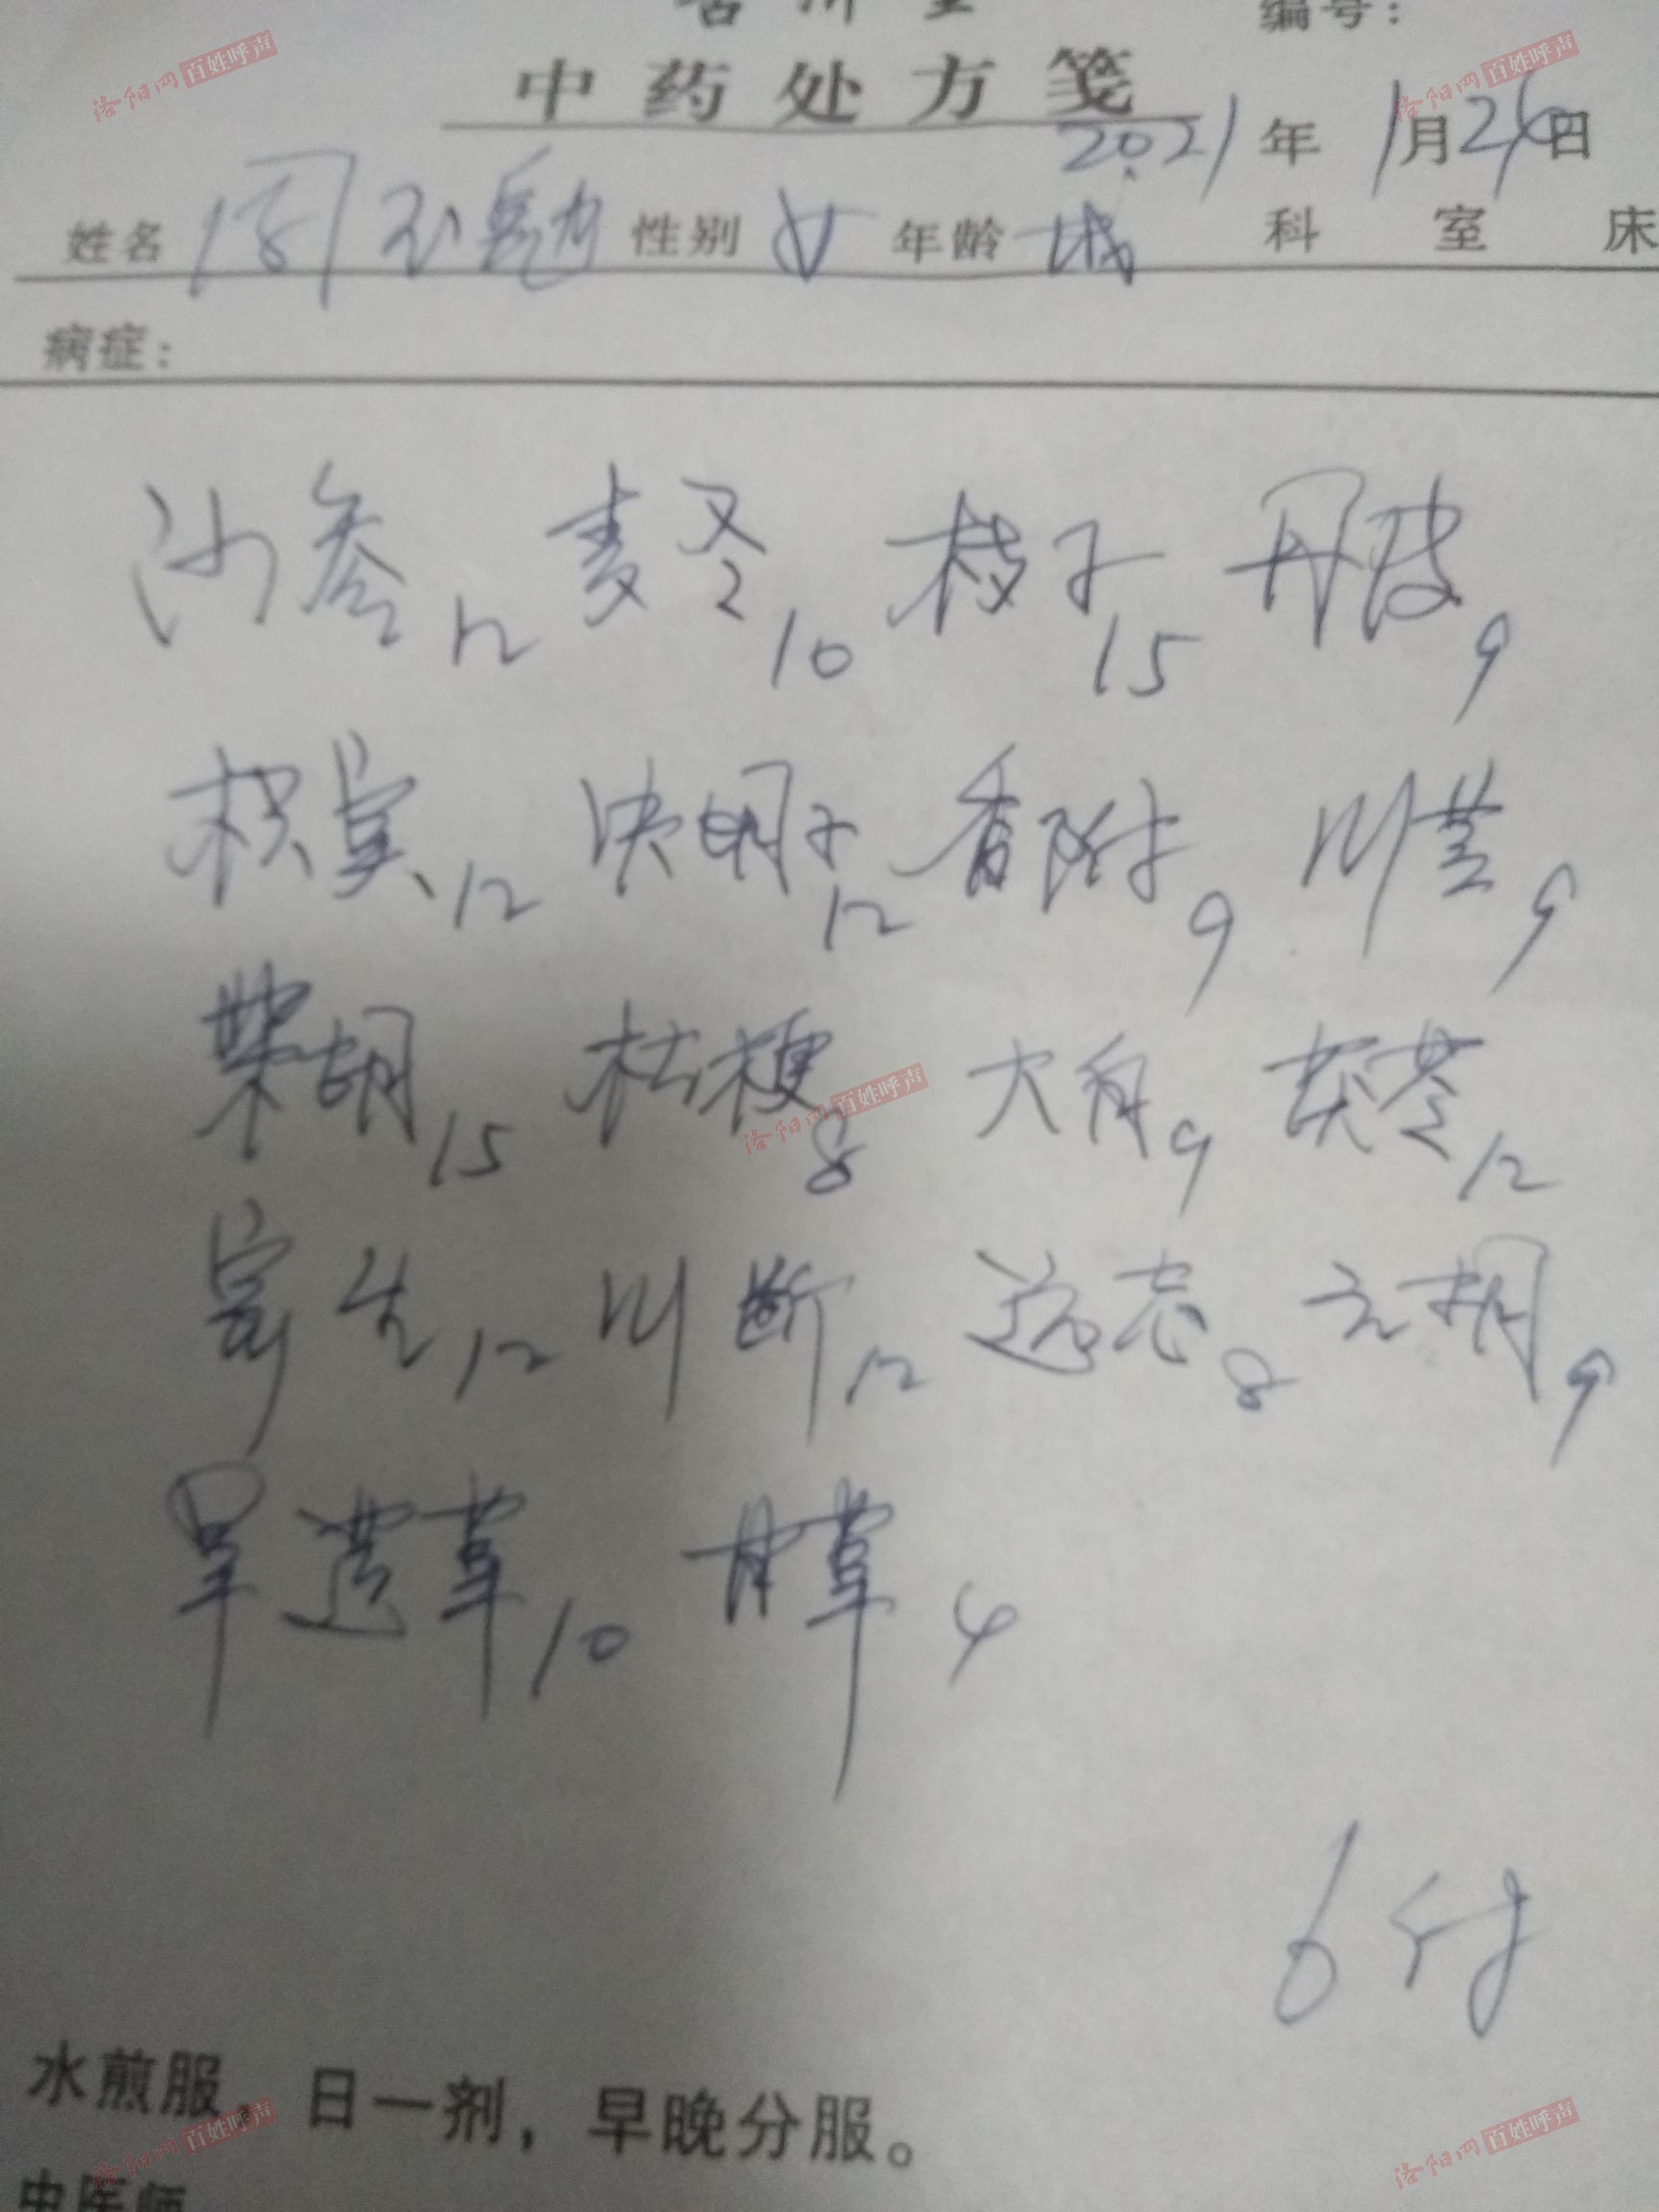 编号：
中药处方笺
2021年1月26日
姓名 周 性别 女 年龄 成 科 室 床
病症：
沙参12 麦冬10 枝子15 丹皮9
枳实12 决明子12 香附9 川芎9
柴胡15 桔梗8 大白9 茯苓12
寄生12 川断12 远志8 元胡9
旱莲草10 甘草4
6付
水煎服，日一剂，早晚分服。
中医师
洛阳网 百姓呼声
洛阳网 百姓呼声
洛阳网 百姓呼声
洛阳网 百姓呼声
洛阳网 百姓呼声